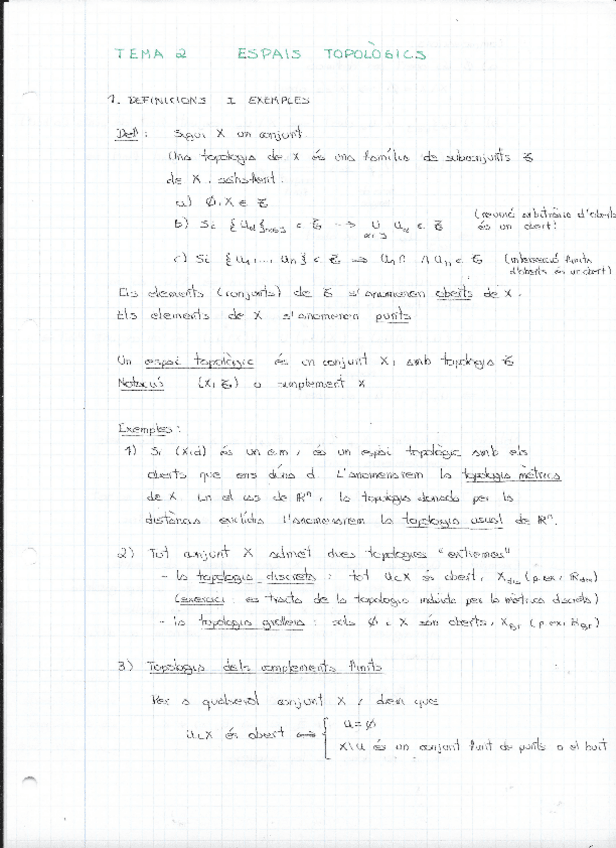 TEMA 2 ESPAIS TOPOLÒGICS
1. DEFINICIONS I EXEMPLES
Def: Sigui X un conjunt.
Una topologia de X és una família de subconjunts 𝒯
de X, satisfent:
a) ∅, X ∈ 𝒯
b) Si {Uα}α∈J ⊂ 𝒯 ⟹ ∪α∈J Uα ∈ 𝒯 (reunió arbitrària d'oberts és un obert)
c) Si {U1,..., Un} ⊂ 𝒯 ⟹ U1 ∩ ∩ Un ∈ 𝒯 (intersecció finita d'oberts és un obert)
Els elements (conjunts) de 𝒯 s'anomenen oberts de X.
Els elements de X s'anomenen punts
Un espai topològic és un conjunt X, amb topologia 𝒯
Notació (X, 𝒯) o simplement X
Exemples:
1) Si (X,d) és un e.m, és un espai topològic amb els
oberts que ens dóna d. L'anomenarem la topologia mètrica
de X. En el cas de ℝⁿ, la topologia donada per la
distància euclídia l'anomenarem la topologia usual de ℝⁿ.
2) Tot conjunt X admet dues topologies "extremes"
- la topologia discreta: tot U⊂X és obert, Xdis (p.ex, ℝdis)
(exercici: es tracta de la topologia induïda per la mètrica discreta)
- la topologia grollera: sols ∅ i X són oberts, Xgr (p.ex, ℝgr)
3) Topologia dels complements finits
Per a qualsevol conjunt X, diem que
U⊂X és obert ⟺ { U=∅
X\U és un conjunt finit de punts o el buit